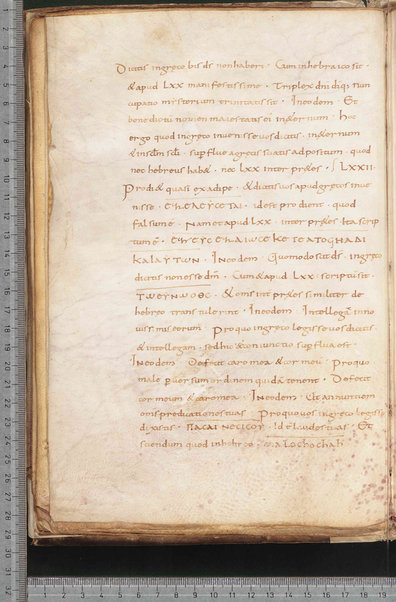 Dicitis ingreco bis ds non haberi · Cum inhebraico sit ·
& apud LXX manifestissime · Triplex dni di qi nun
cupatio misterium trinitatis sit · In eodem · Et
benedictū nomen maiestatis ei inęternum · Hoc
ergo quod ingreco inuenisse uos dicitis · inęternum
& insclm scli · superflue agrecis sciatis adpositum · quod
nec hebreus hab& · nec LXX interpr&es · LXXII ·
Prodi& quasi exadipe · & dicitis uos apud grecos inue
nisse · idest prodient · quod
falsum ē · Nam et apud LXX · interpr&es · Ita scrip
tum ē ·
ΚΑΙ ΑΥΤΩΝ · In eodem · Quomodo scit ds · ingreco
dicitis non esse dm̄ · Cum & apud LXX · scriptū sit ·
& omis interpr&es similiter de
hebreo transtulerint · In eodem · Intellegā inno
uissimis eorum · Pro quo ingreco legisse uos dicitis ·
& intellegam · sed hic & coniunctio superflua est ·
In eodem · Defecit caro mea & cor meū · Pro quo
male p uersum ordinem quidā tenent · Defecit
cor meum & caro mea · In eodem · Ut annuntiem
omis predicationes tuas · Pro quo uos ingreco legisse
dixistis · Id ē laudes tuas · Et
sciendum quod inhebreo · malochochah ·